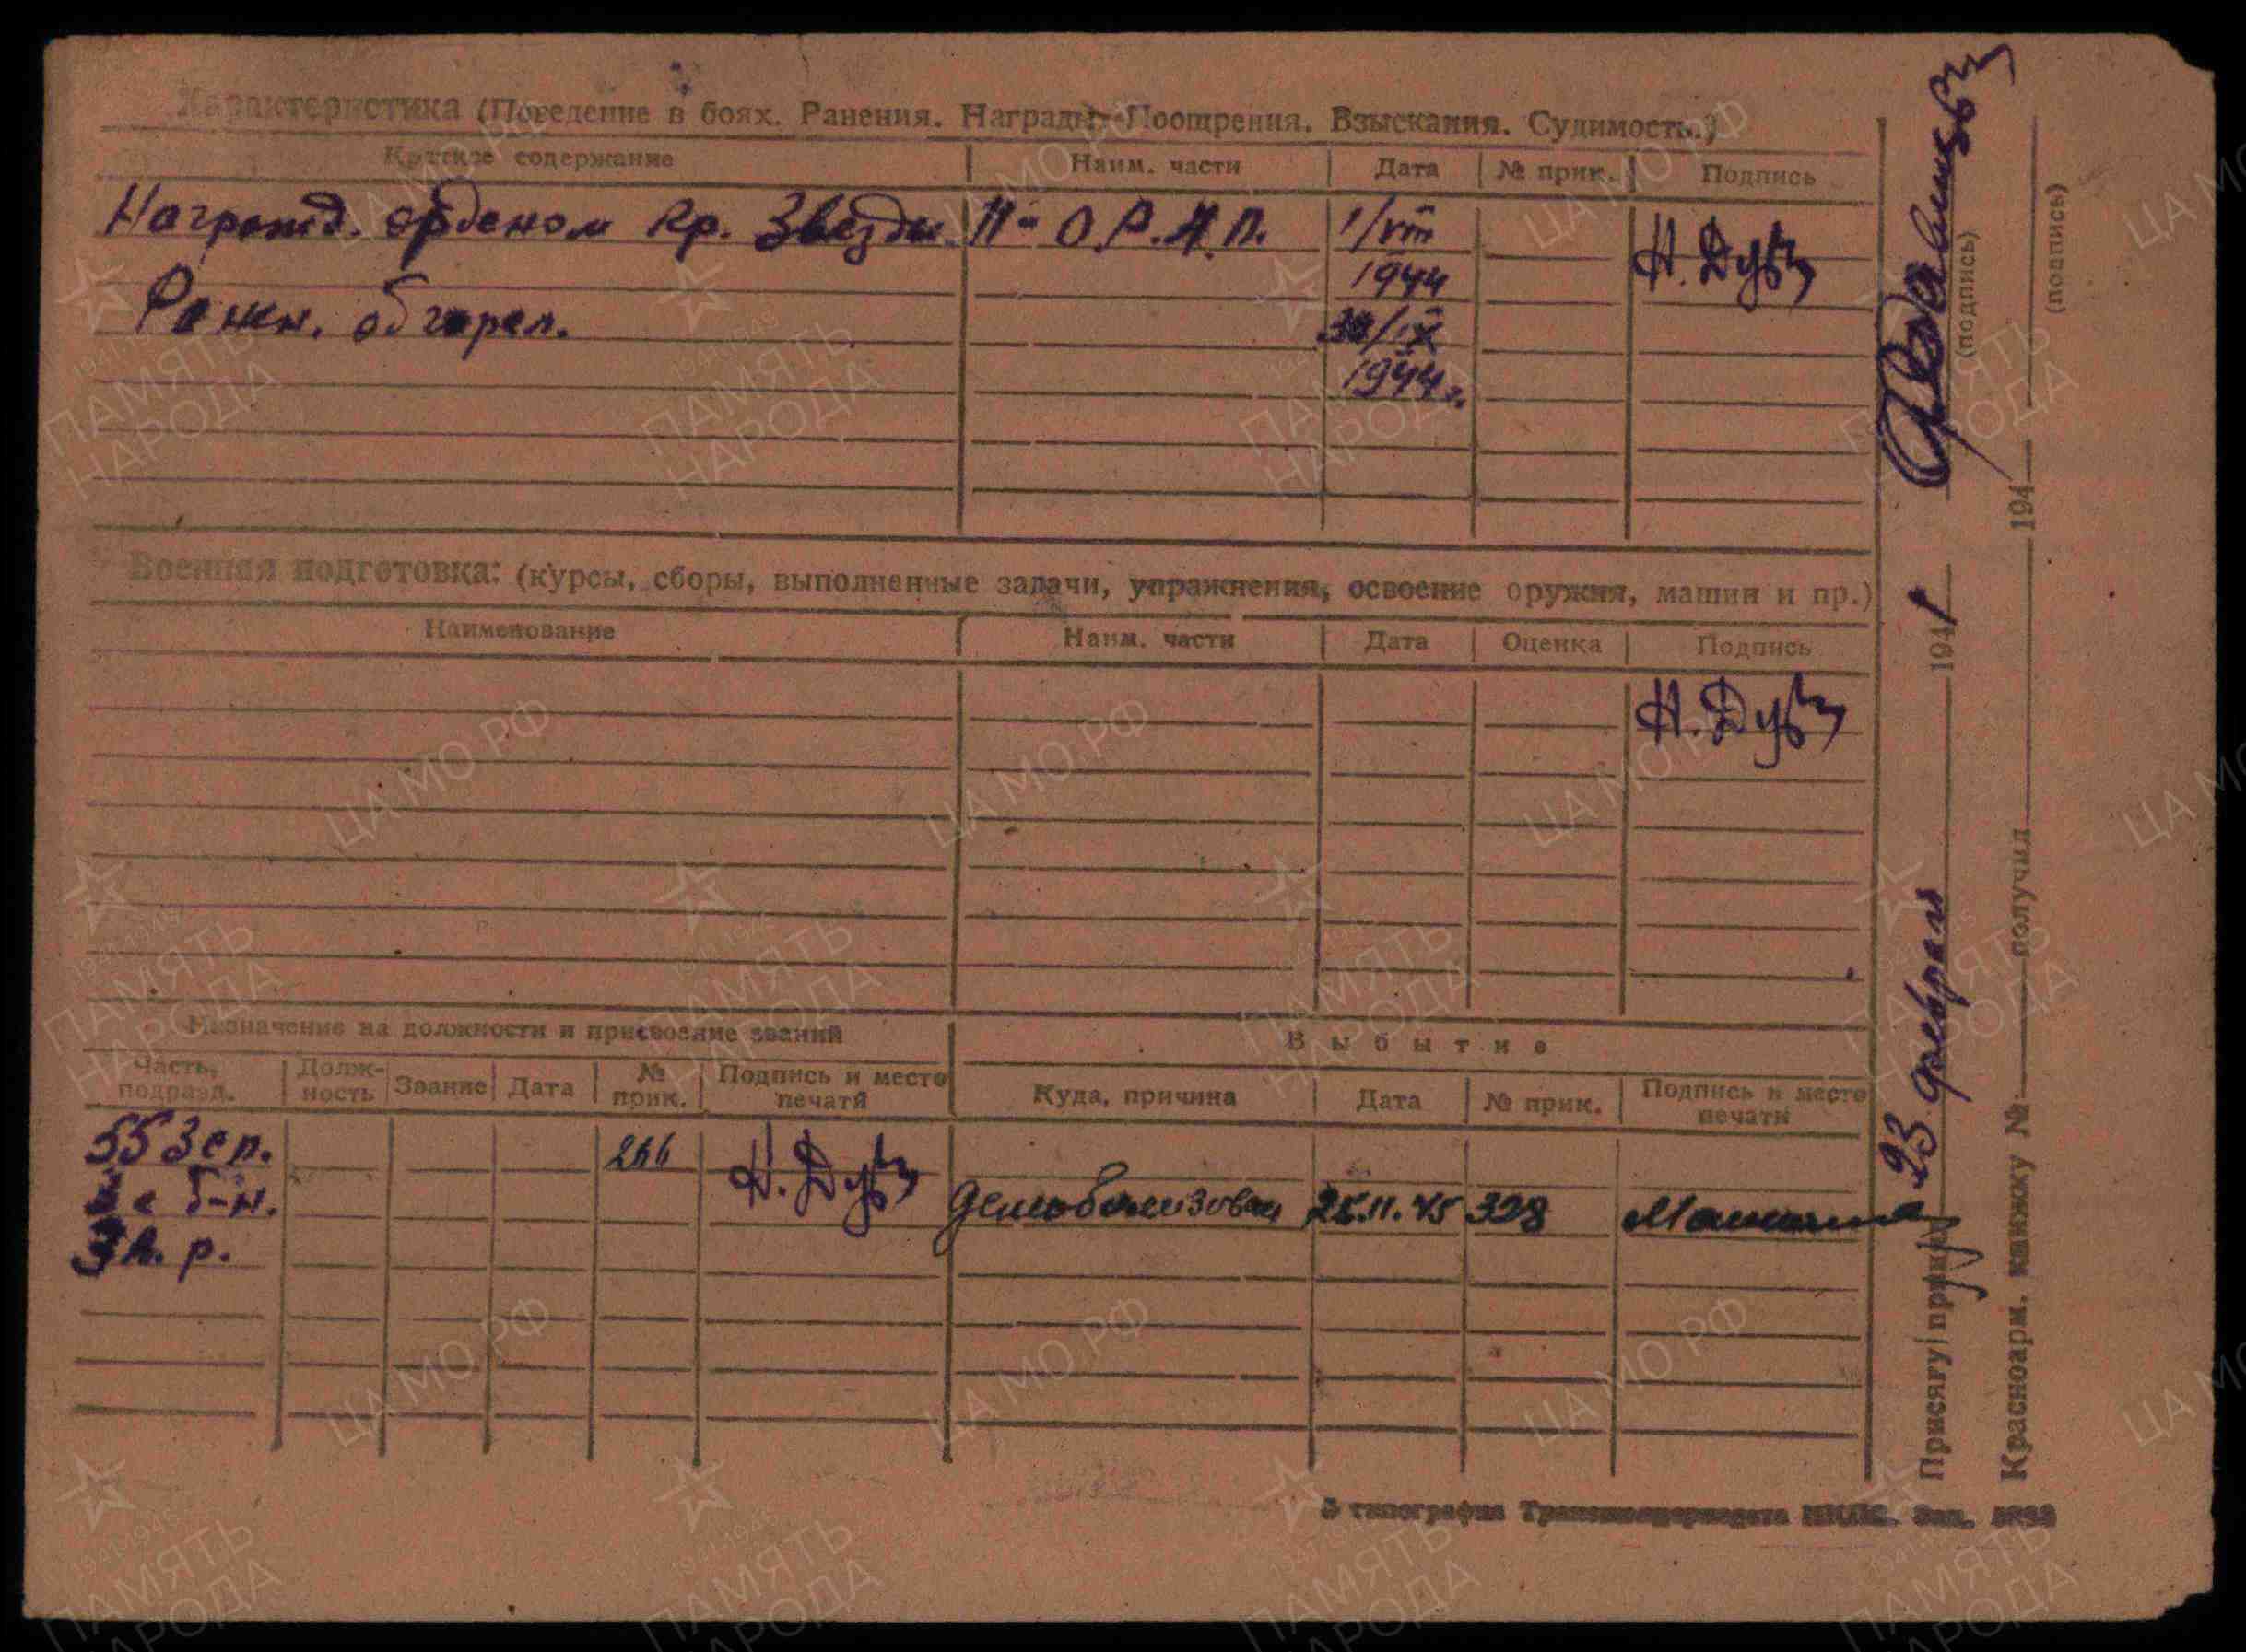 Характеристика (Поведение в боях. Ранения. Награды. Поощрения. Взыскания. Судимость.)
Краткое содержание Наим. части Дата № прик. Подпись
Награжд. орденом Кр. Звезды О.Р.А.П. 1/VIII Н. Дуб
1944
Ранен. обгорел. 30/IX
1944 г.
Военная подготовка: (курсы, сборы, выполненные задачи, упражнения, освоение оружия, машин и пр.)
Наименование Наим. части Дата Оценка Подпись
Н. Дуб
Назначение на должности и присвоение званий Выбытие
Часть, подразд. Должность Звание Дата № прик. Подпись и место печати Куда, причина Дата № прик. Подпись и место печати
55 Зсп. 266 Н. Дуб
б-н. Демобилизован 25.11.45 328
р.
3 типография НКПС. Зак.
Присягу принял 23 февраля 1941
(подпись)
Красноарм. книжку № получил 194
(подпись)
ЦА МО РФ
1941-1945
ПАМЯТЬ
НАРОДА